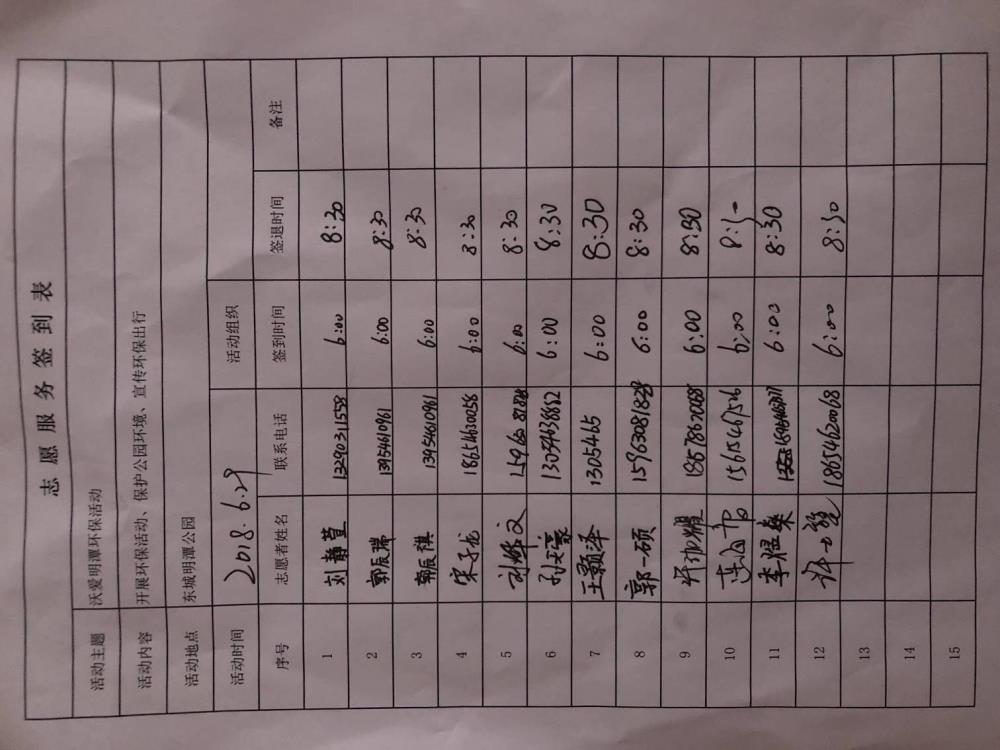 志愿服务签到表
活动主题 沃爱明潭环保活动
活动内容 开展环保活动、保护公园环境、宣传环保出行
活动地点 东城明潭公园
活动时间 2018.6.29 活动组织
序号 志愿者姓名 联系电话 签到时间 签退时间 备注
1 刘静萱 13290311558 6:00 8:30
2 郭辰瑞 13954610961 6:00 8:30
3 郭辰祺 13954610961 6:00 8:30
4 宋子龙 18654630056 6:00 8:30
5 6:00 8:30
6 13054638862 6:00 8:30
7 王颢泽 1305465 6:00 8:30
8 郭一硕 15963081828 6:00 8:30
9 6:00 8:30
10 15615467526 6:00 8:30
11 李煜燊 6:00 8:30
12 18654620068 6:00 8:30
13
14
15